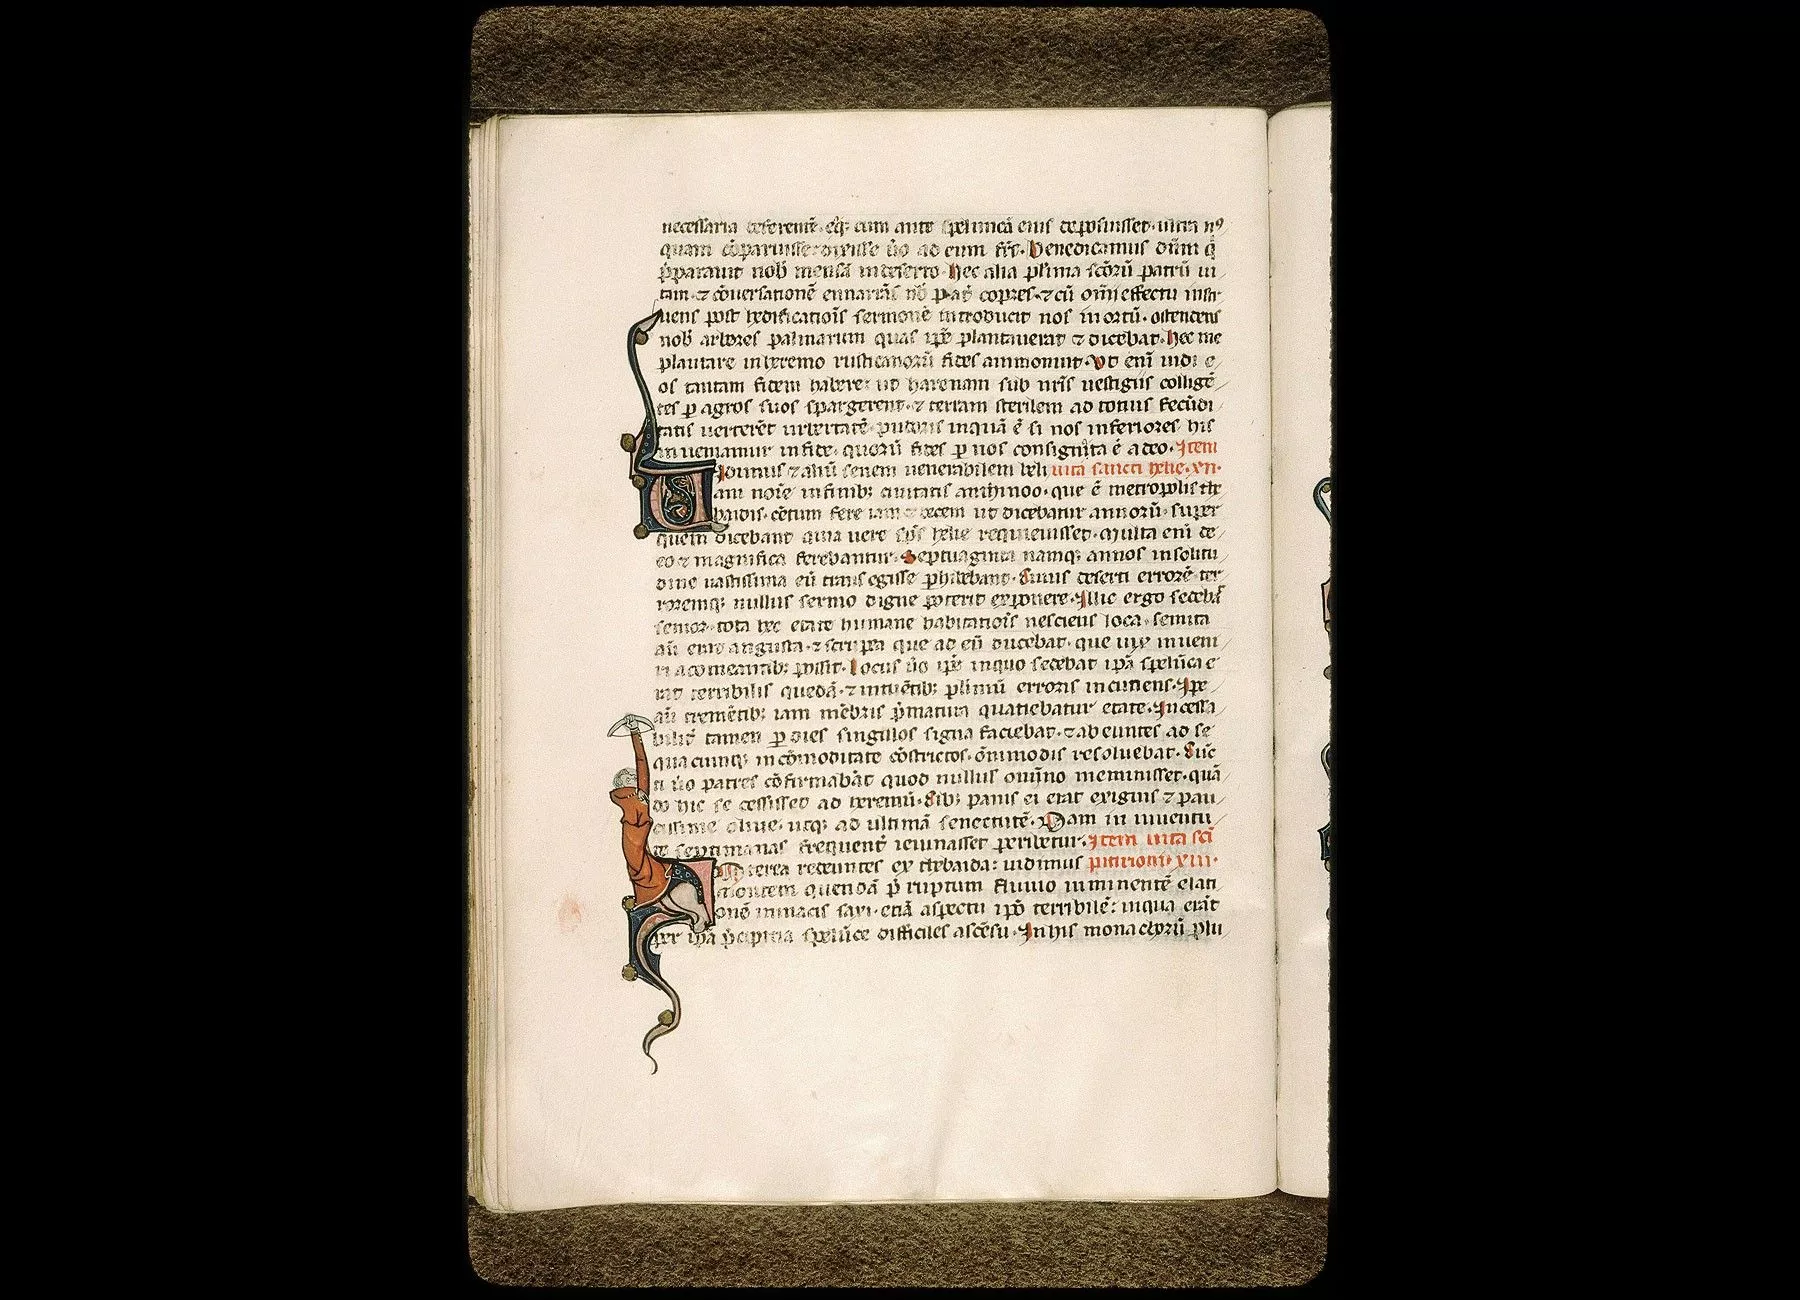 necessaria deferent̄. eq; cum ante speluncā eius deposuisset. ultra nꝰ
quam cōparuisse. dixisse ūo ad eum frs̄. Benedicamus dn̄m q̄
p̄parauit nob̄ mensā in deserto. Hec alia pl̄ima sc̄orū patrū ui
tam. ⁊ cōuersationē enarrās nob̄ pat̄ copres. ⁊ cū om̄i effectu instr
uens post hedificatiois̄ sermonē introducit nos in ortū. ostendens
nob̄ arbores palmarum quas ip̄e plantauerat ⁊ dicebat. Hec me
plantare in heremo rusticanorū fides ammonuit. Vt enī uidi e
os tantam fidem habere: ut harenam sub nr̄is uestigiis colligē
tes p agros suos spargerent. ⁊ terram sterilem ad totius fecūdi
tatis uerterēt ubertatē. pudoris inquā ē si nos inferiores his
inueniamur in fide. quorū fides p nos consignata ē a deo. Item
uita sancti helie. xii.
idimus ⁊ aliū senem uenerabilem heli
am noīe in finib; ciuitatis anthinoo. que ē metropolis the
baidis. cētum fere iam ⁊ decem ut dicebatur annorū. super
quem dicebant quia uere sp̄s helie requieuisset. Multa enī de
eo ⁊ magnifica ferebantur. Septuaginta namq; annos in solitu
dine uastissima eū transegisse phibebant. Cuius deserti errorē ter
roremq; nullus sermo digne poterit exponere. Illic ergo sedeba᷑
senior. tota hec etate humane habitatiois̄ nesciens loca. semita
aū erat angusta. ⁊ scrupea que ad eū ducebat. que uix inueni
ri a comeantib; possit. Locus ūo ip̄e in quo sedebat ip̄a spelūca e
rat terribilis quedā. ⁊ intuētib; pl̄imū erroris incutiens. Ip̄e
aū trementib; iam mēbris p̄matura quatiebatur etate. Incessa
bilit̄ tamen p dies singulos signa faciebat. ⁊ ab euntes ad se
quacunq; incōmoditate cōstrictos. ōnimodis resoluebat. Cūc
ti ūo patres cōfirmabāt quod nullus om̄ino meminisset. quā
do hic se cessisset ad heremū. Cib; panis ei erat exiguus ⁊ pau
cissime oliue. usq; ad ultimā senectutē. Nam in iuuentu
te septimanas frequent̄ ieiunasset peribetur. Item uita sc̄i
pitirionis xiii.
Interea redeuntes ex thebaida: uidimus
montem quendā p̄ruptum fluuio imminentē elati
onē minacis saxi. etiā aspectu ip̄o terribilē: in qua erāt
per ip̄a p̄cipicia spelūce difficiles ascēsu. In his monachorū plu